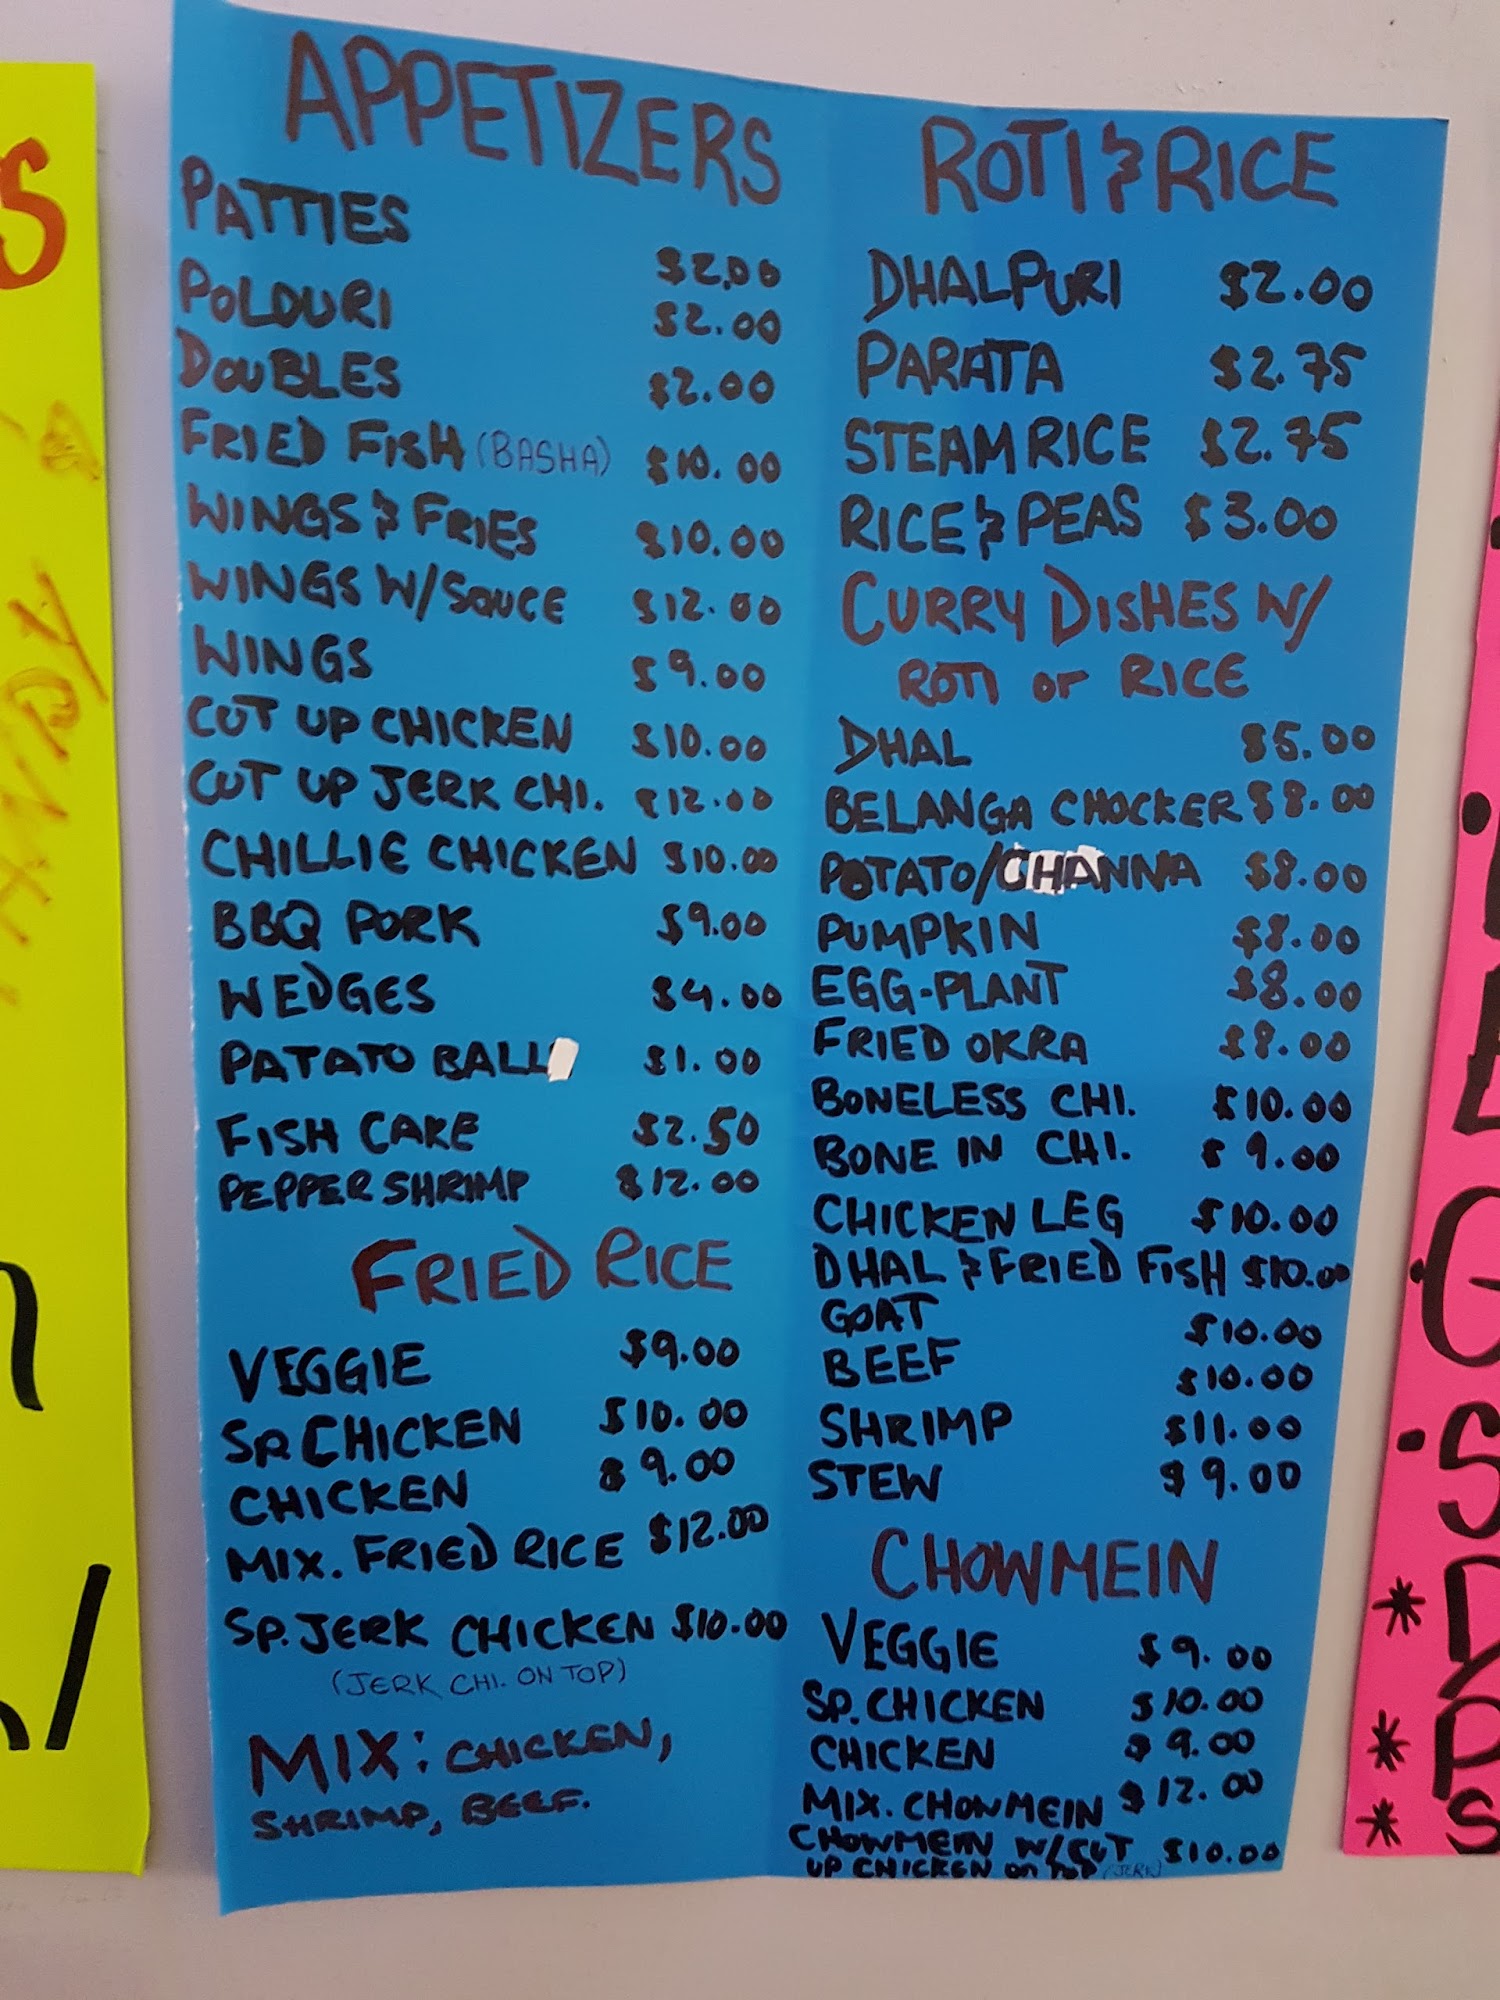 APPETIZERS
PATTIES $2.00
POLOURI $2.00
DOUBLES $2.00
FRIED FISH (BASHA) $10.00
WINGS & FRIES $10.00
WINGS W/SAUCE $12.00
WINGS $9.00
CUT UP CHICKEN $10.00
CUT UP JERK CHI. $12.00
CHILLIE CHICKEN $10.00
BBQ PORK $9.00
WEDGES $4.00
PATATO BALL $1.00
FISH CAKE $2.50
PEPPER SHRIMP $12.00
FRIED RICE
VEGGIE $9.00
SP. CHICKEN $10.00
CHICKEN $9.00
MIX. FRIED RICE $12.00
SP. JERK CHICKEN $10.00
(JERK CHI. ON TOP)
MIX: CHICKEN,
SHRIMP, BEEF.
ROTI & RICE
DHALPURI $2.00
PARATA $2.75
STEAM RICE $2.75
RICE & PEAS $3.00
CURRY DISHES W/
ROTI or RICE
DHAL $5.00
BELANGA CHOCKER $8.00
POTATO/CHANNA $8.00
PUMPKIN $8.00
EGG-PLANT $8.00
FRIED OKRA $8.00
BONELESS CHI. $10.00
BONE IN CHI. $9.00
CHICKEN LEG $10.00
DHAL & FRIED FISH $10.00
GOAT $10.00
BEEF $10.00
SHRIMP $11.00
STEW $9.00
CHOWMEIN
VEGGIE $9.00
SP. CHICKEN $10.00
CHICKEN $9.00
MIX. CHOWMEIN $12.00
CHOWMEIN W/CUT $10.00
UP CHICKEN on TOP (JERK)